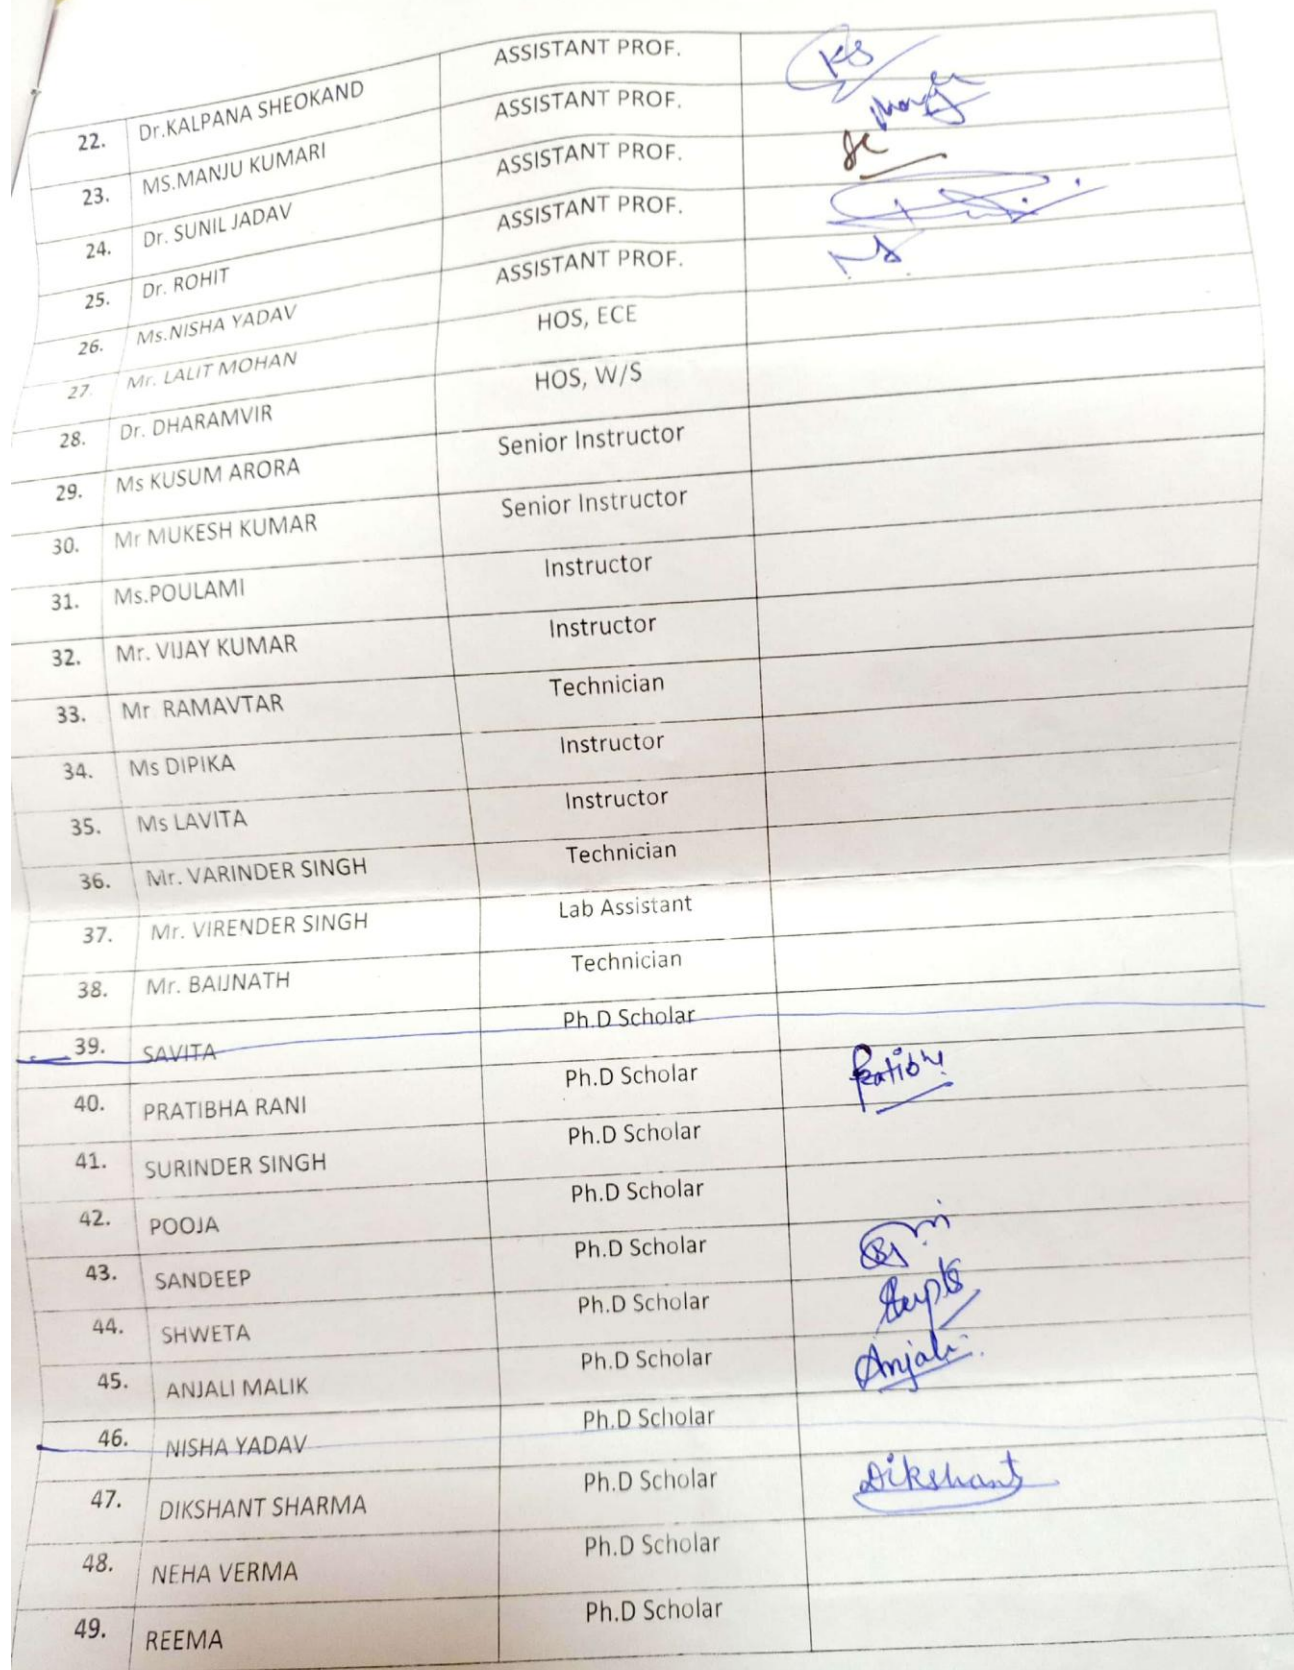 22. Dr.KALPANA SHEOKAND ASSISTANT PROF. KS
23. MS.MANJU KUMARI ASSISTANT PROF.
24. Dr. SUNIL JADAV ASSISTANT PROF.
25. Dr. ROHIT ASSISTANT PROF.
26. Ms.NISHA YADAV ASSISTANT PROF.
27. Mr. LALIT MOHAN HOS, ECE
28. Dr. DHARAMVIR HOS, W/S
29. Ms KUSUM ARORA Senior Instructor
30. Mr MUKESH KUMAR Senior Instructor
31. Ms.POULAMI Instructor
32. Mr. VIJAY KUMAR Instructor
33. Mr RAMAVTAR Technician
34. Ms DIPIKA Instructor
35. Ms LAVITA Instructor
36. Mr. VARINDER SINGH Technician
37. Mr. VIRENDER SINGH Lab Assistant
38. Mr. BAIJNATH Technician
39. SAVITA Ph.D Scholar
40. PRATIBHA RANI Ph.D Scholar
41. SURINDER SINGH Ph.D Scholar
42. POOJA Ph.D Scholar
43. SANDEEP Ph.D Scholar
44. SHWETA Ph.D Scholar
45. ANJALI MALIK Ph.D Scholar Anjali
46. NISHA YADAV Ph.D Scholar
47. DIKSHANT SHARMA Ph.D Scholar Dikshant
48. NEHA VERMA Ph.D Scholar
49. REEMA Ph.D Scholar